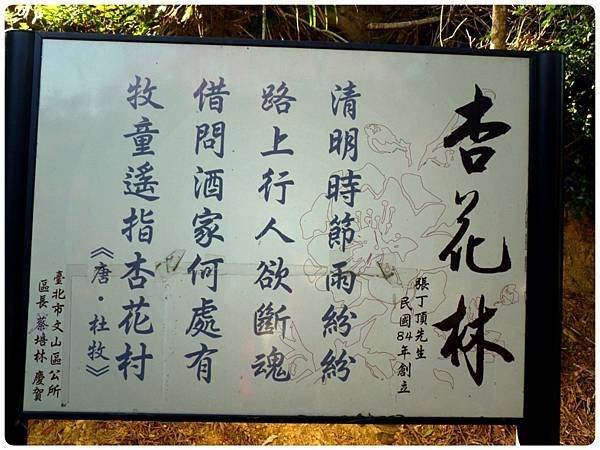 杏花林
張丁頂先生
民國84年創立
清明時節雨紛紛
路上行人欲斷魂
借問酒家何處有
牧童遙指杏花村
《唐·杜牧》
臺北市文山區公所
區長 蔡培林 慶賀